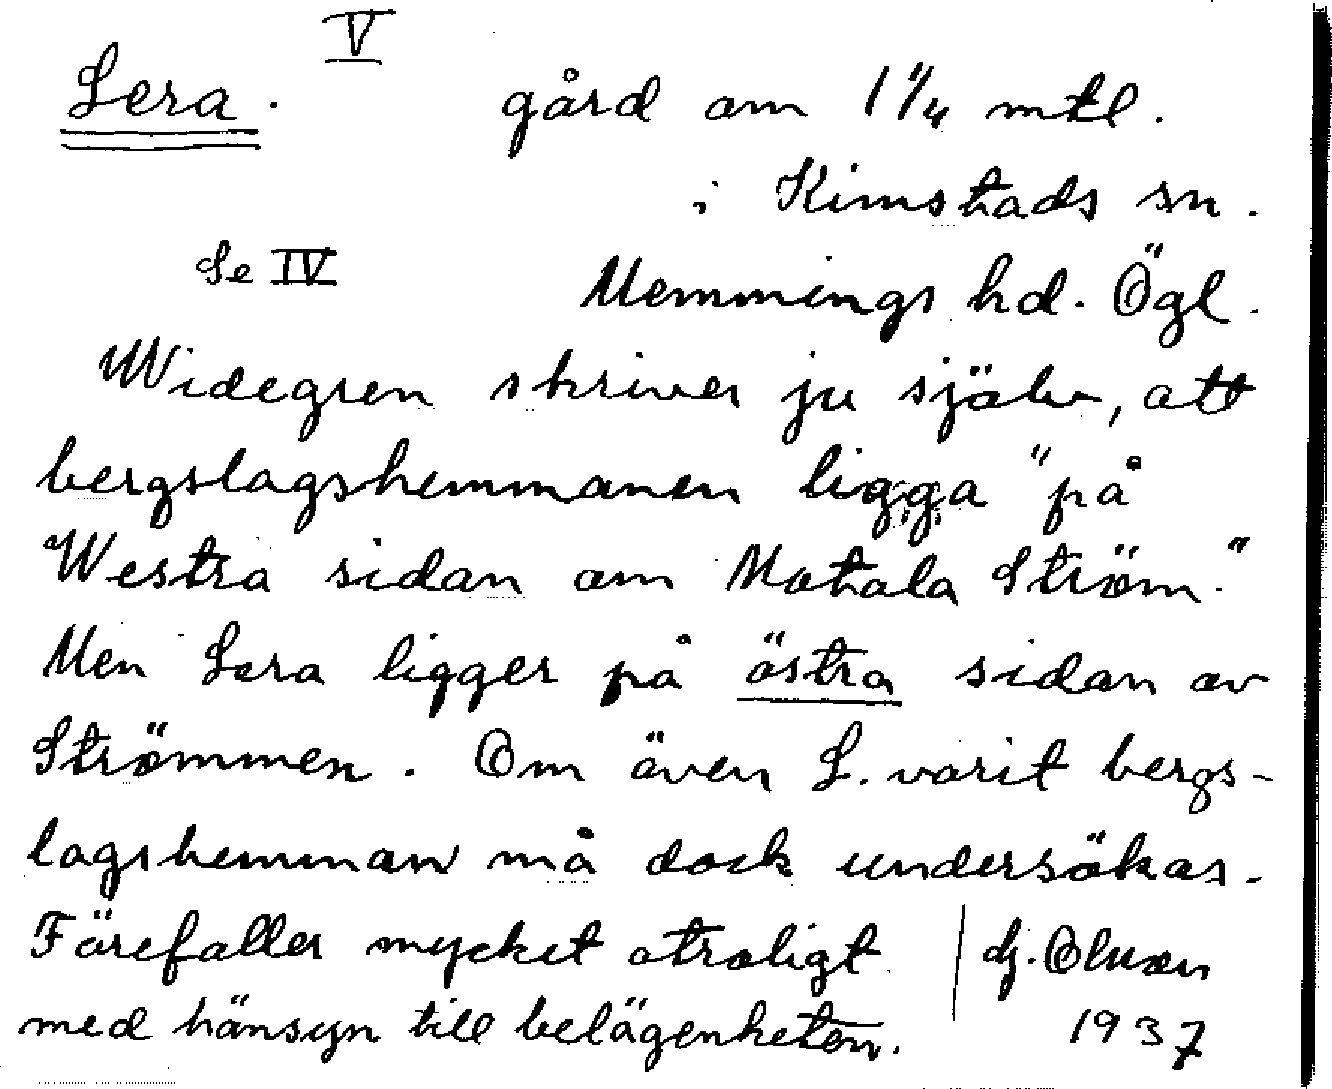 V
Lera. gård om 1 1/4 mtl.
i Kimstads sn.
Se IV Memmings hd. Ögl.
Widegren skriver ju själv, att
bergslagshemmanen ligga "på
Westra sidan om Motala Ström."
Men Lera ligger på östra sidan av
Strömmen. Om även L. varit bergs-
lagshemman må dock undersökas.
Förefaller mycket otroligt
med hänsyn till belägenheten.
Olsson
1937